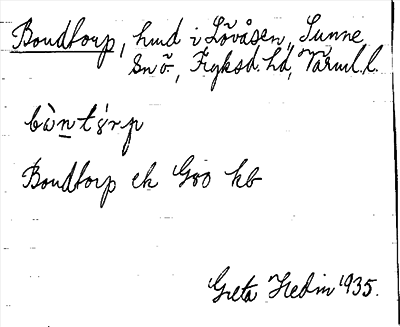 Bondtorp, hmd i Lövåsen, Sunne
Sn ö., Fryksd. hd, Värml. l.
bùntórp
Bondtorp ek Goo kb
Greta Hedin 1935.